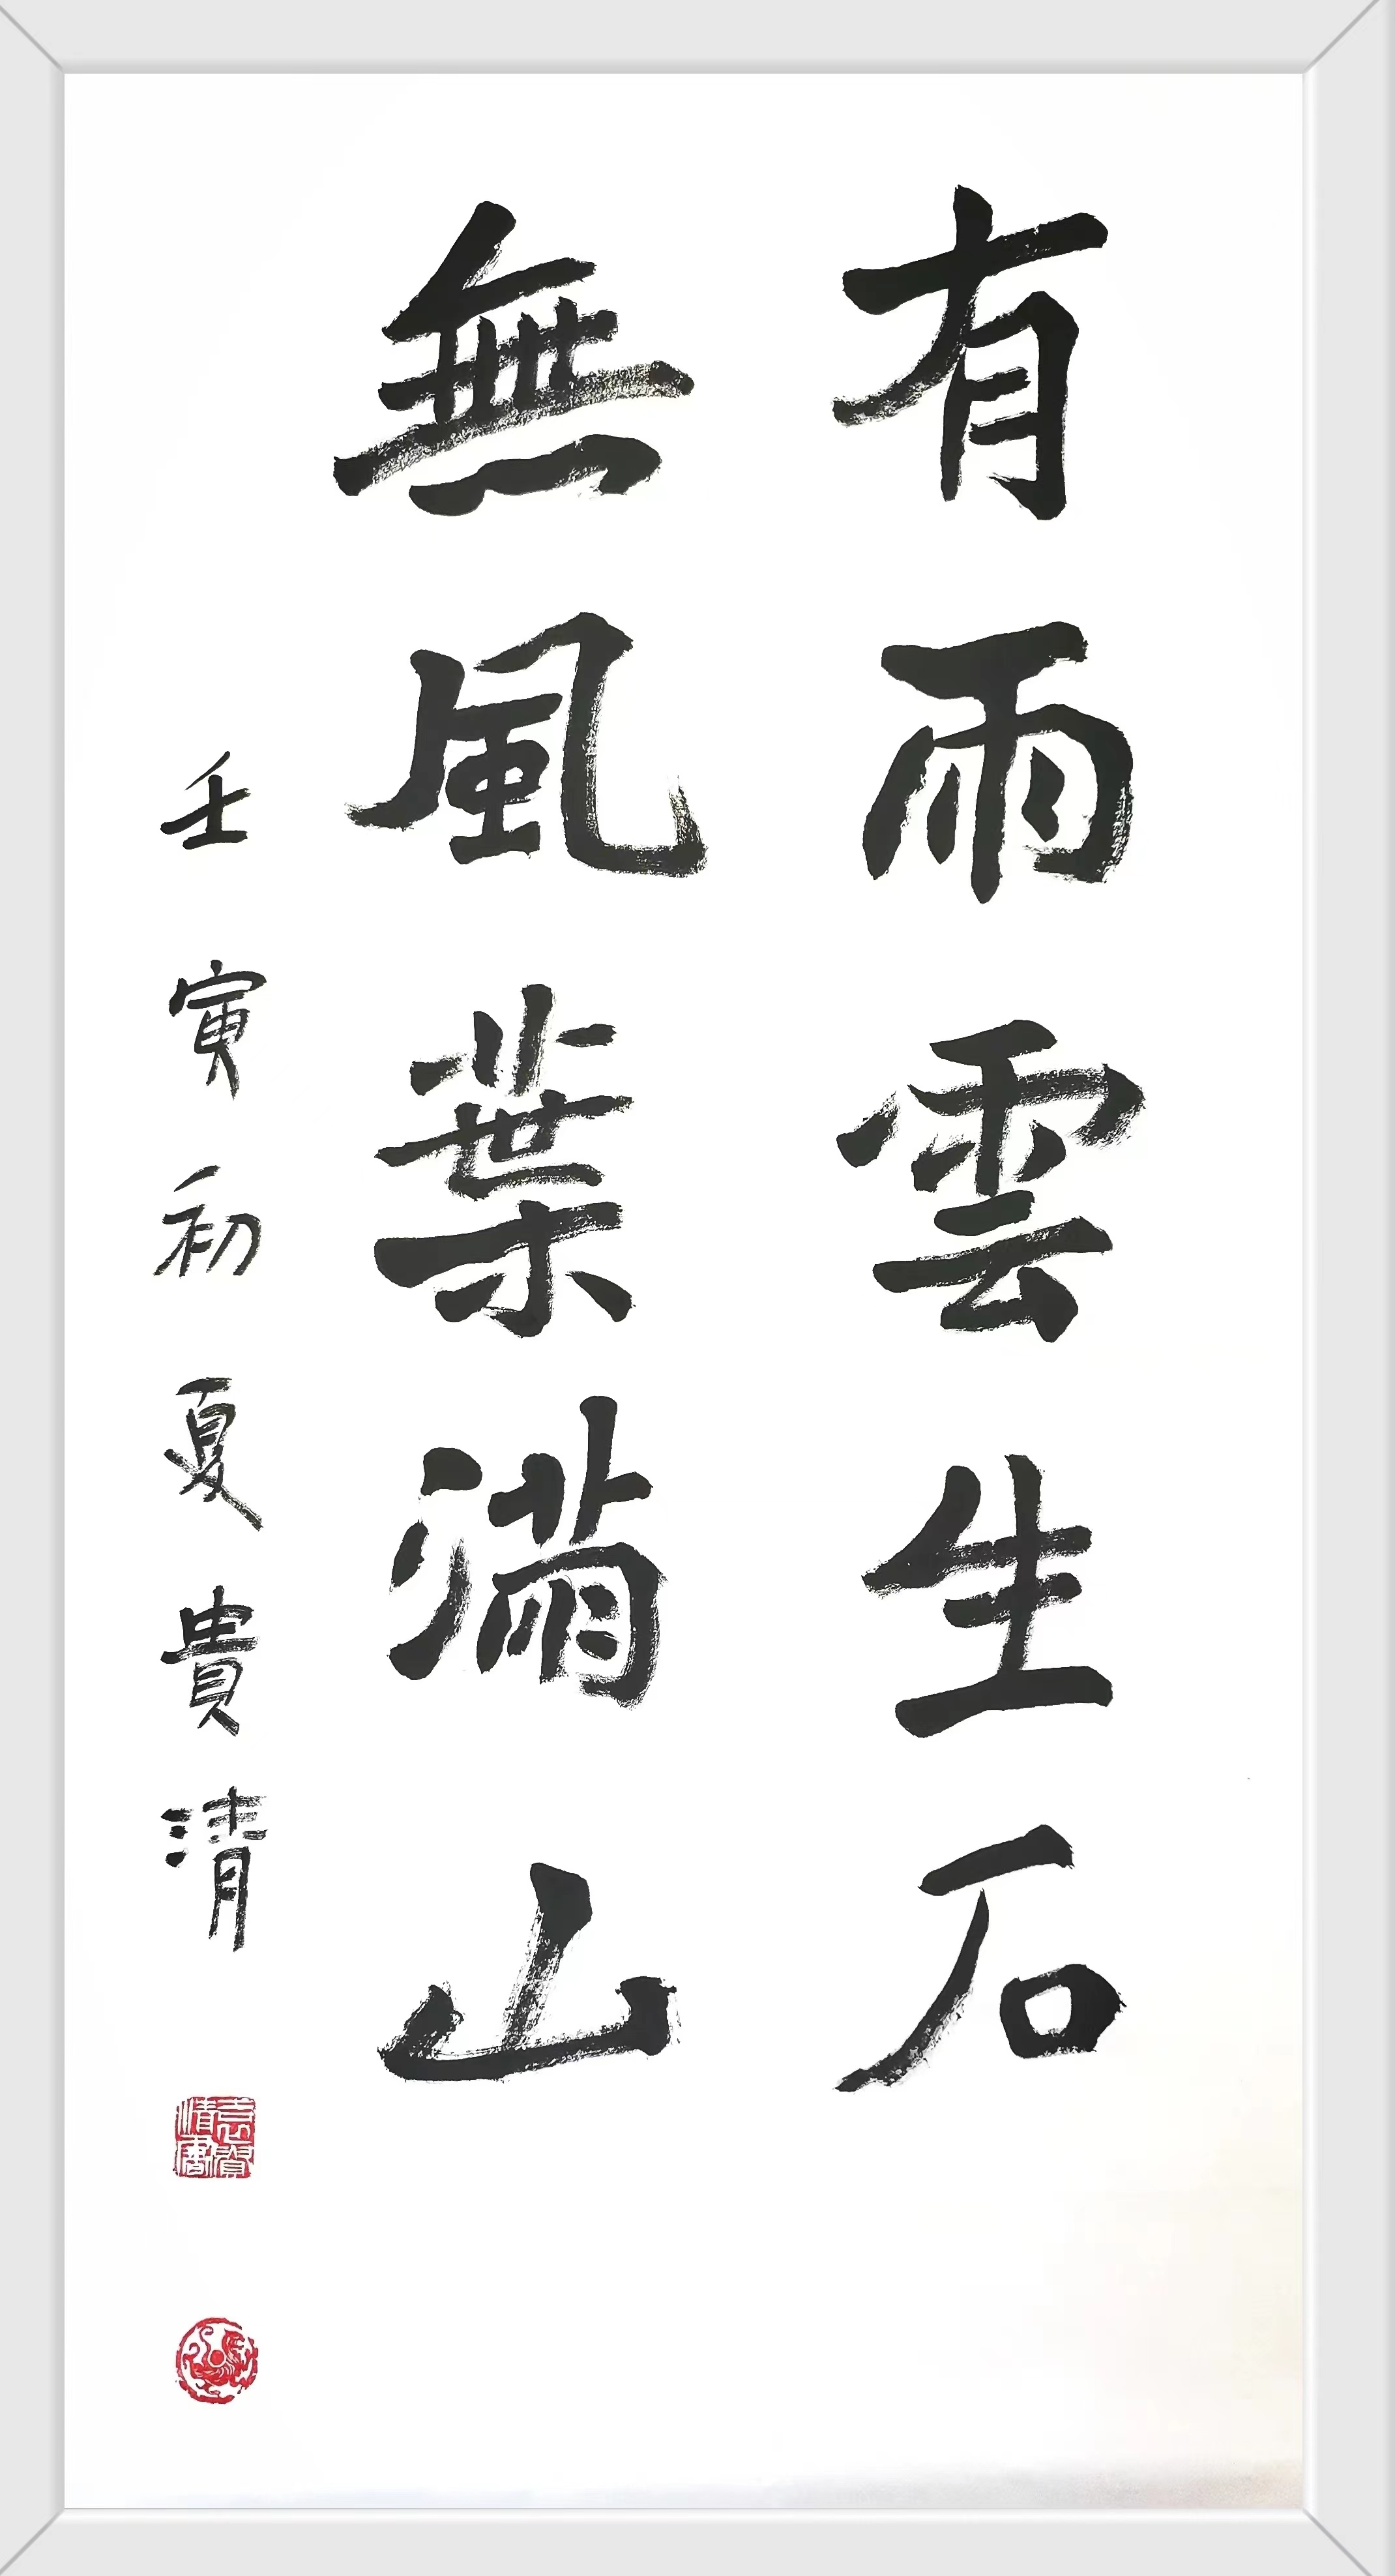 有雨雲生石
無風葉滿山
壬寅初夏貴清